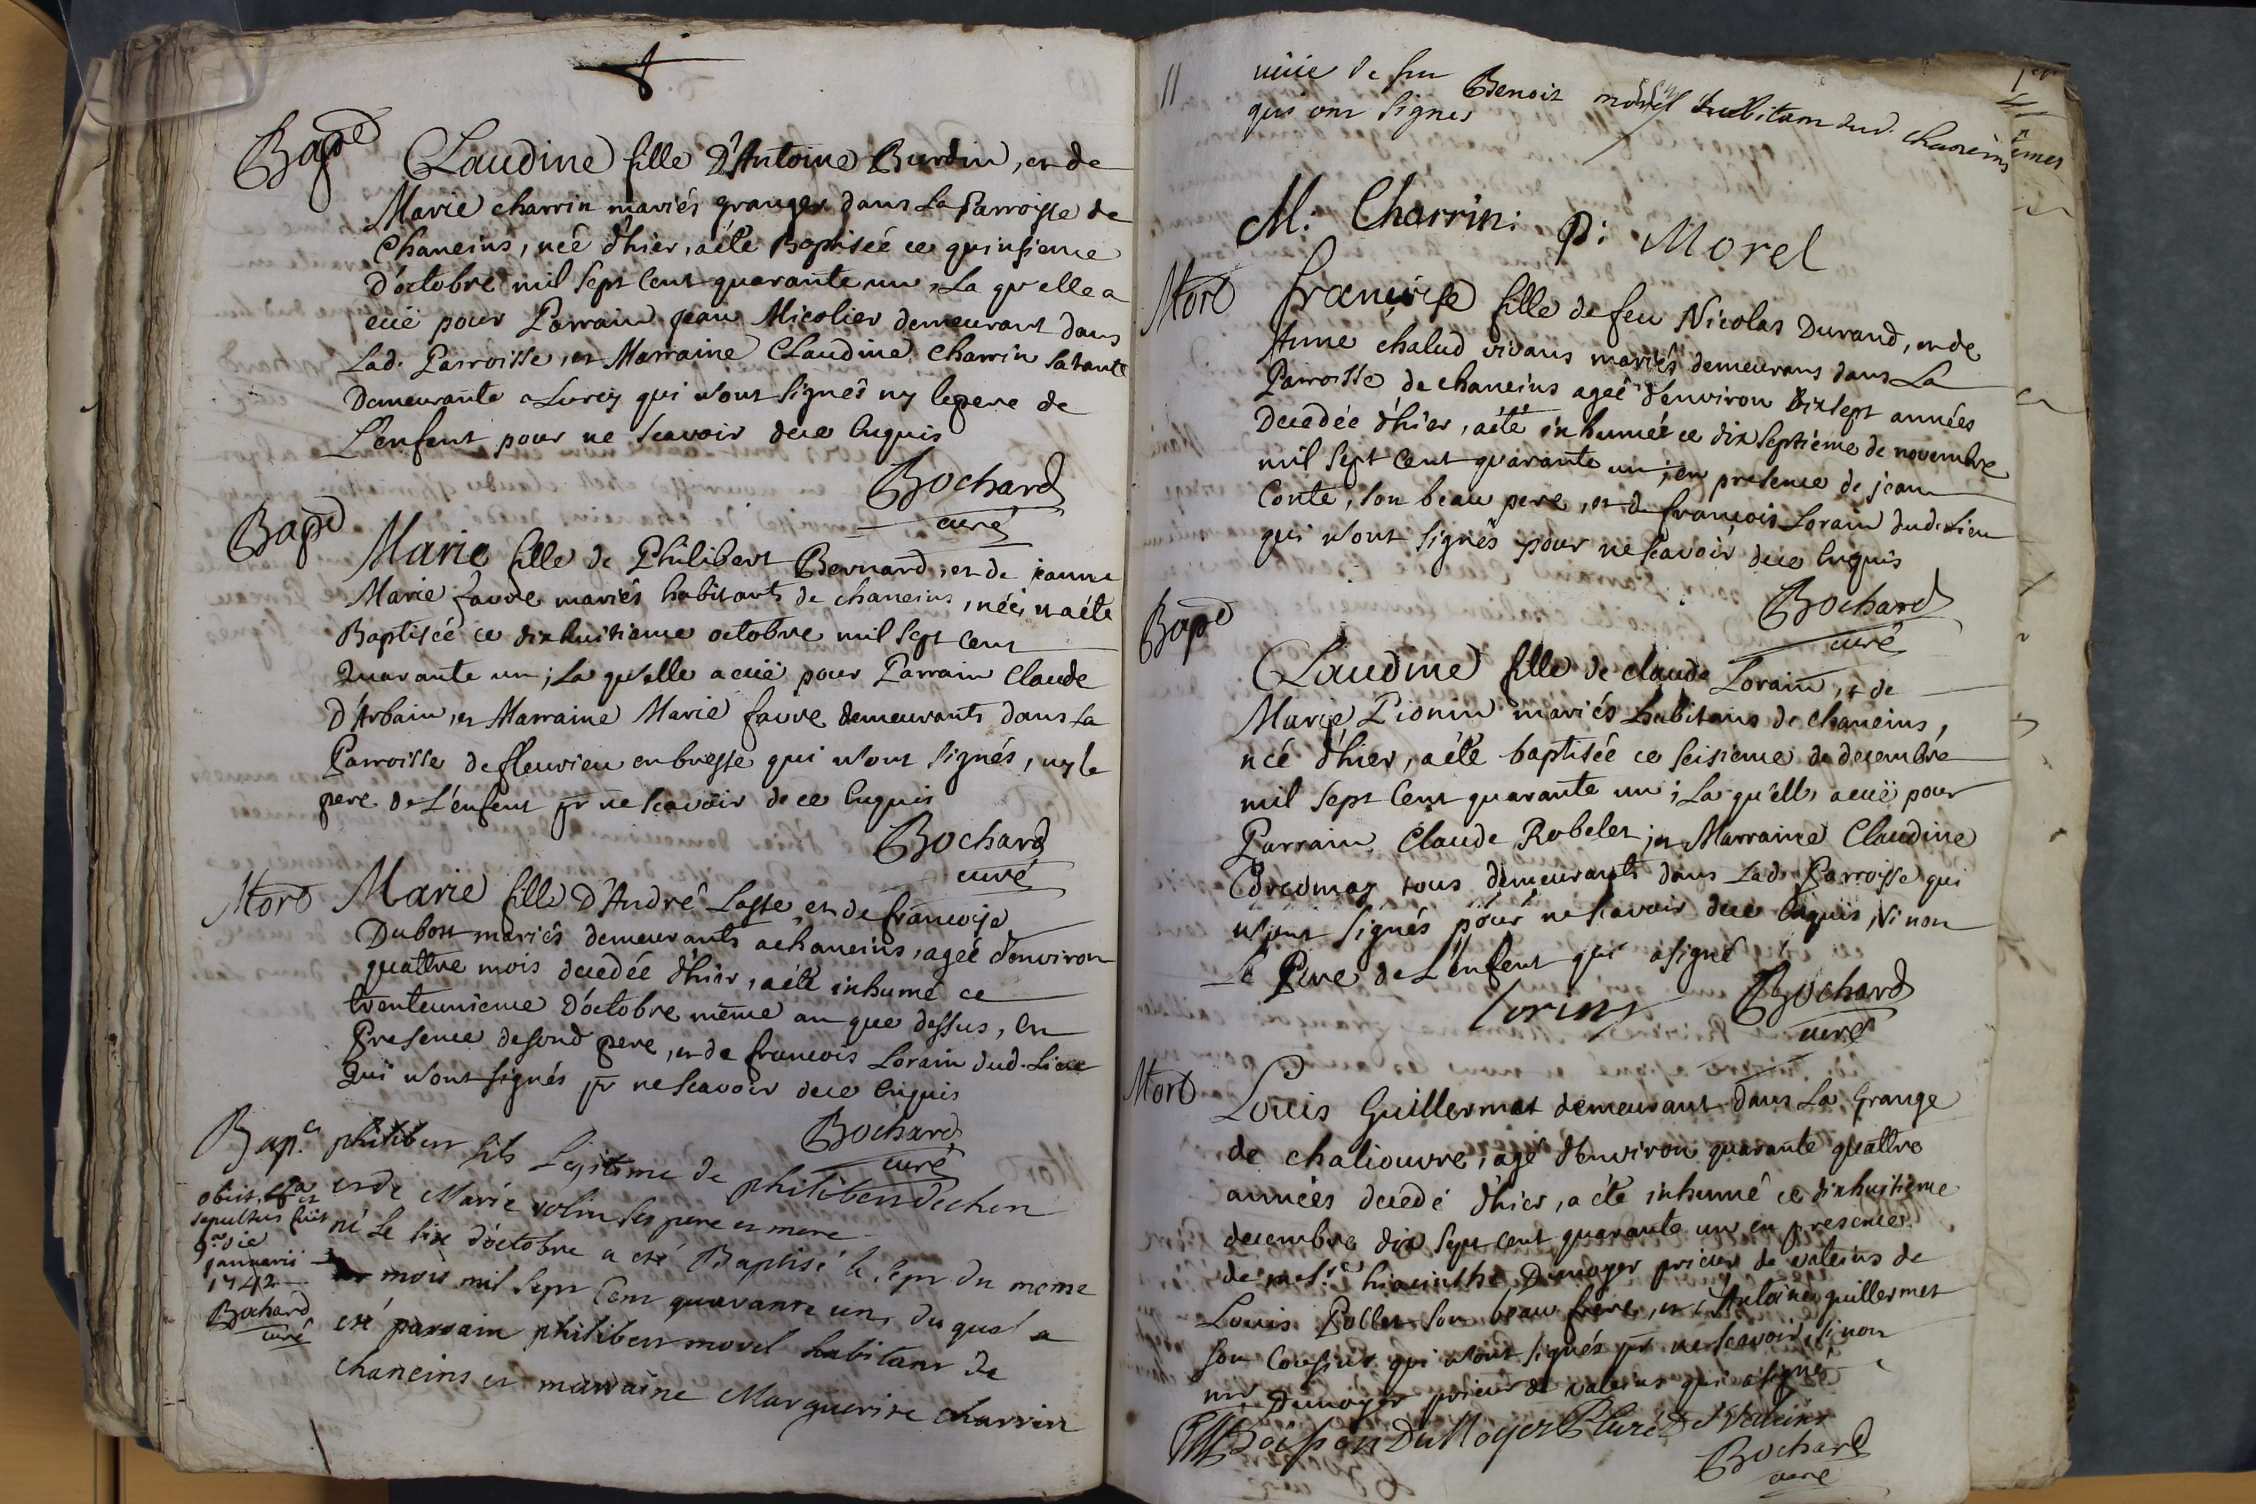 Bap.e
Claudine fille d'Antoine Burdin, et de
Marie charrin mariés granger dans La Parroisse de
Chaneins, née d'hier, a été Baptisée ce quinsieme
d'octobre mil sept Cent quarante un, La qu'elle a
eüe pour Parrain jean Micolier demeurant dans
Lad. Parroisse, et Marraine Claudine Charrin sa tante
Demeurante a Lurcy qui n'ont signés ny le pere de
L'enfent pour ne scavoir de ce Enquis
Bochard
curé
Bap.e
Marie fille de Philibert Bernard, et de jeanne
Marie favre mariés habitants de chaneins, née, et a été
Baptisée ce dixhuitieme octobre mil sept Cent
Quarante un; La qu'elle a eüe pour Parrain Claude
D'Arbain, et Marraine Marie favre demeurants dans La
Parroisse de fleurieu en bresse qui n'ont signés, ny le
pere de L'enfent pr ne scavoir de ce Enquis
Bochard
curé
Mort
Marie fille d'André Lasse, et de francoise
Dubost mariés demeurants a chaneins, ageé d'environ
quattre mois decedée d'hier, a été inhumé ce
trenteunieme d'octobre même an que dessus, En
Presence de sond pere, et de francois Lorain dud. Lieu
Qui n'ont signés pr ne scavoir de ce Enquis
Bochard
curé
Bap.e
philibert fils Legitime de philibert Dechen
et de Marie volin ses pere et mere
né le six d'octobre a eté Baptisé le sept du meme
mois mil sept Cent quarante un, du quel a
eté parrain philibert morel habitant de
chaneins et marraine Marguerite charrin
obiit, et
sepultus fuit
9.a die
januarii
1742
Bochard
curé
11
veüve de feu Benoit morel habitant dud. chaneins
qui ont signes
M: Charrin: P: Morel
Mort
francoise fille de feu Nicolas Durand, et de
Anne chalud vivans mariés demeurans dans La
Parroisse de chaneins ageé d'environ dixsept années
Decedée d'hier, a été inhumée ce dix septieme de novembre
mil sept Cent quarante un; en presence de jean
Conte, son beau pere, et de francois Lorain dud. Lieu
qui n'ont signés pour ne scavoir de ce Enquis
Bochard
curé
Bap.e
Claudine fille de claude Lorain, et de
Marie Pionin mariés habitans de chaneins,
née d'hier, a été baptisée ce seisieme de decembre
mil sept Cent quarante un; La qu'elle a eüe pour
Parrain Claude Robelet; et Marraine Claudine
tous demeurants dans Lad. Parroisse qui
n'ont signés pour ne scavoir de ce Enquis, Si non
Le Pere de L'enfent qui a signé
Lorins
Bochard
curé
Mort
Louis Guillermet demeurant dans La Grange
de chaliouvre, agé d'environ quarante quattre
années decedé d'hier, a été inhumé ce dixhuitieme
decembre dix sept cent quarante un en presence
de mes.re hiacinthe Dunoyer prieur de valeins de
Louis Pollet son beau frere, et d'Antoine guillermet
son Cousin qui n'ont signés pr ne scavoir, si non
mr Dunoyer prieur de valeins qui a signé
Du Noyer P Curé de Valeins
Bochard
curé